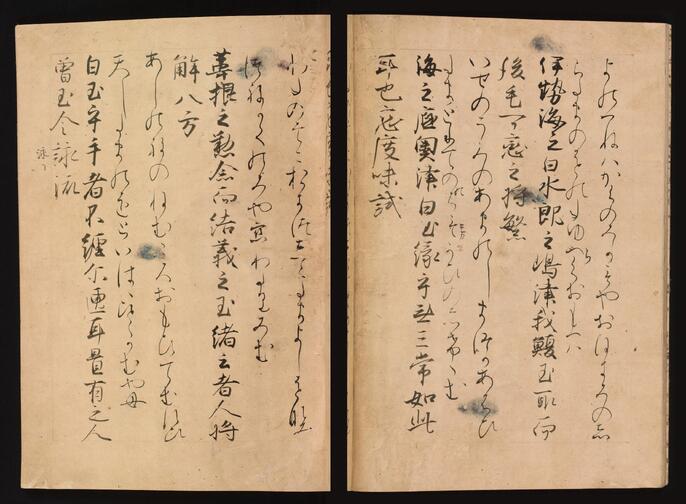 よのつねはかくのみかとやおほきみの志
らたまのをのたゆらくおもへは
伊勢海之白水郎之嶋津我鰒玉取而
後毛可戀之将繁
いせのうみのあまのしまつかあはひ
たまとりてのちもかこひの
海之底奥津白玉縁乎無三常如此
耳也戀度味試
わたのそこおきつしらたまよしをな
つねかくのみや戀わたりなむ
葦根之懃念而結義之玉緒云者人将
解八方
あしのねのねむころおもひてむすひ
てしたまのをといはゝひとゝかむやも
白玉乎手者不纏尓匣耳置有之人
曽玉令詠流